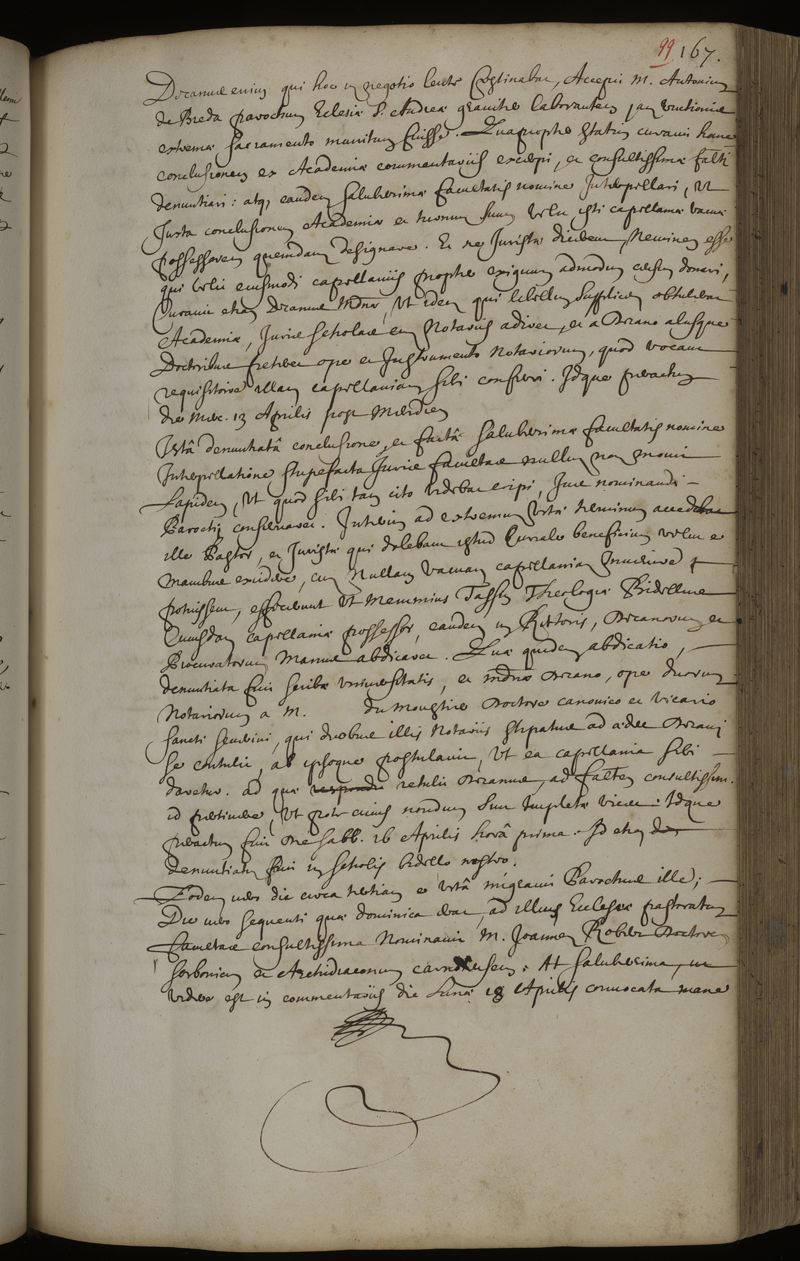 99 167.
Decanus enim qui hoc in negotio lente festinabat, Accepit M. Antonium
de Breda parochum Eclesiæ S. Andreæ graviter laborantem, jam unctionis
extremæ sacramento munitum fuisse. Quapropter statim curavit hanc
conclusionem ex Academiæ commentariis excerpi, et consultissimæ facti
denuntiari: atq, eandem saluberrimæ facultatis nomine Interpellari, ut
Juxta conclusionem Academiæ et turnum suum vellet isti capellaniæ vacuæ
possessorem quemdam designare. Et ne Juristæ dicerent Neminem esse
qui velit eiusmodi capellaniis propter exiguum admodum censum donari,
Curavit etiam Decanus Mdnæ, ut idem qui libellum supplicem obtulerat
Academiæ, Juris scholas cum Notariis adiret, et a Decano aliisque
Doctoribus peteret ope et Instrumento Notariorum, quod vocant
requisitoire illam capellaniam sibi conferri. Idque peractum
die Merc. 13 Aprilis post Meridiem
Istâ denuntiatâ conclusione, et factâ saluberrimæ facultatis nomine
Interpellatione stupefacta Juris facultas nullum non movit
Lapidem, ut quod sibi tam cito videbat eripi, Jus nominandi
Parochum conservaret. Interim ad extremum vitæ terminum accedebat
ille Pastor, et Juristæ qui dolebant istud Curiale beneficium velut e
manibus excidere, cum Nullam vacuam capellaniam invenire
potuissent, effecerunt ut Memmius Tasse Theologiæ Bidellus
Cuiusdam capellaniæ possessor, eandem in Rectoris, Decanorum et
Procuratorum Manus abdicaret. Quæ quidem abdicatio,
denuntiata fuit scribæ Universitatis, et mdnæ Decano, ope duorum
Notariorum a M. du Monstier Doctore canonico et vicario
sancti Severini, qui duobus illis Notariis stipatus ad ædes Decani
se contulit, ab ipsoque postulavit, ut ea capellania sibi
daretur. ad quæ respondit retulit Decanus, ad factem consultissim.
id pertinere, ut pote cuius nondum sint Impletæ vices: Idque
peractum fuit die sabb. 16 Aprilis horâ prima. Id etiam
denuntiatum fuit in scholis bidello nostro.
Eodem vero die circa tertiam e vitâ migravit Parochus ille;
Die vero sequenti quæ dominica erat, ad illius Ecclesiæ pastoratum
facultas consultissima Nominavit M. Joannem Robert Doctorem
sorbonicum et Archidiaconum carnutensem: At saluberrima, ut
videre est in commentariis die Lunæ 18 Aprilis convocata mane